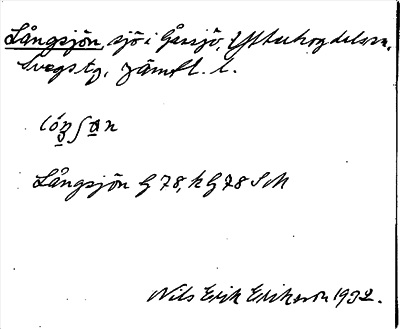 Långsjön, sjö i Gåssjö, Ytterhogdals sn,
Svegs tg, Jämtl. l.
Långsjön G 78, k G 78 SM
Nils Erik Eriksson 1932.